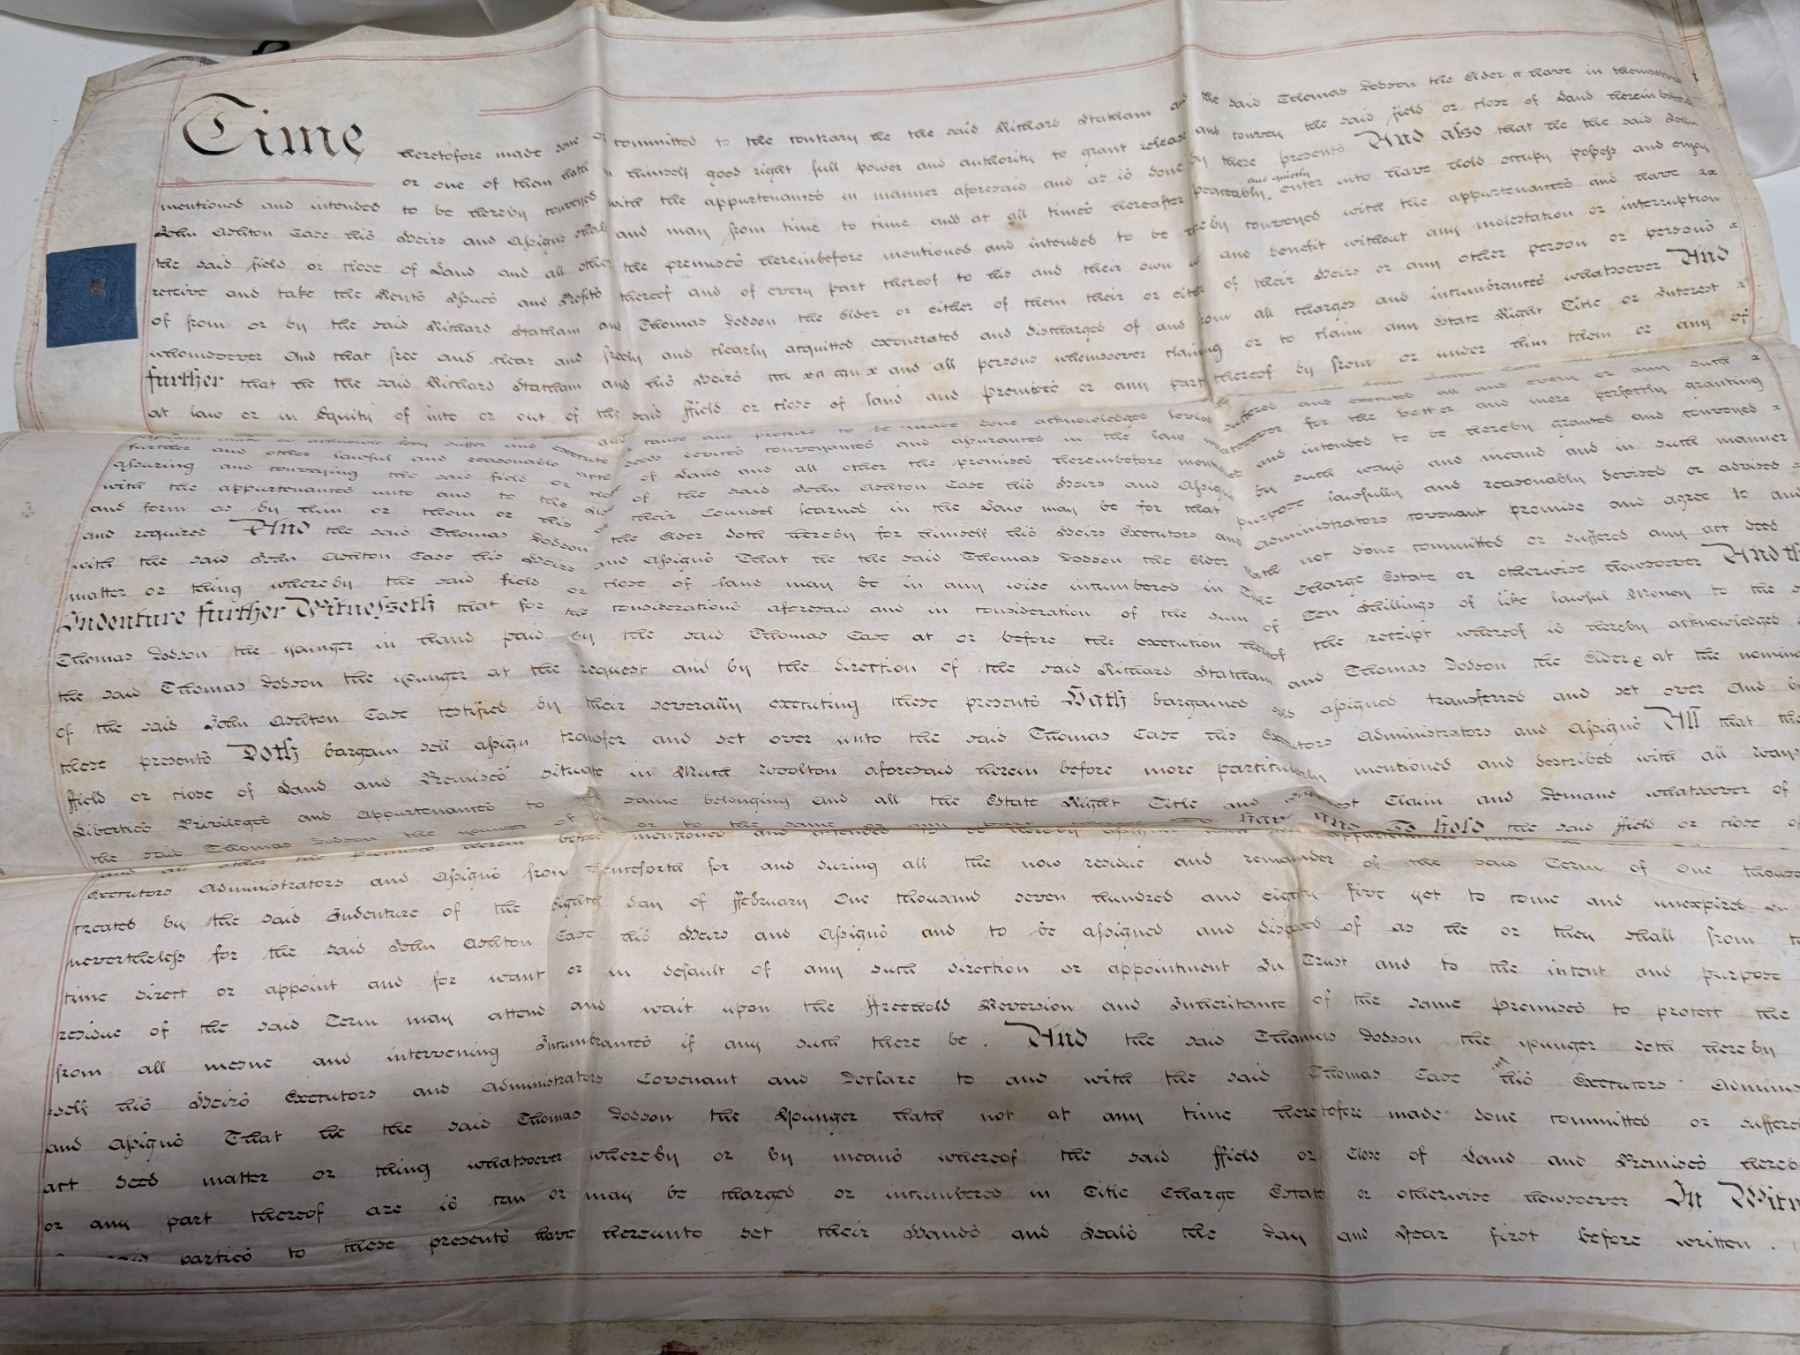 Time heretofore made done or committed to the contrary he the said Richard Statham and the said Thomas Dodson the Elder or have in themselves
or one of them hath in himself good right full power and authority to grant release and convey the said field or close of Land hereinbefore
mentioned and intended to be hereby conveyed with the appurtenances in manner aforesaid and as is done by these presents And also that he the said John
Ashton Case his Heirs and Assigns shall and may from time to time and at all times hereafter peaceably and quietly enter into have hold occupy possess and enjoy
the said field or close of Land and all other the premises hereinbefore mentioned and intended to be hereby conveyed with the appurtenances and have
receive and take the Rents Issues and Profits thereof and of every part thereof to his and their own use and benefit without any molestation or interruption
of from or by the said Richard Statham and Thomas Dodson the Elder or either of them their or either of their Heirs or any other person or persons
whomsoever And that free and clear and freely and clearly acquitted exonerated and discharged of and from all charges and incumbrances whatsoever And
further that he the said Richard Statham and his Heirs and all persons whomsoever claiming or to claim any Estate Right Title or Interest
at law or in Equity of into or out of the said ffield or close of land and Premises or any part thereof by from or under him them or any of
cause and procure to be made done acknowledged levied suffered and executed all and every or any such
further and other lawful and reasonable acts deeds devices conveyances and assurances in the law whatsoever for the better and more perfectly granting
assuring and conveying the said field or close of Land and all other the premises hereinbefore mentioned and intended to be hereby granted and conveyed
with the appurtenances unto and to the use of the said John Ashton Case his Heirs and Assigns by such ways and means and in such manner
and form as by him or them or his or their Counsel learned in the Law may be for that purpose lawfully and reasonably devised or advised
and required And the said Thomas Dodson the Elder doth hereby for himself his Heirs Executors and Administrators covenant promise and agree to and
with the said John Ashton Case his Heirs and Assigns That he the said Thomas Dodson the Elder hath not done committed or suffered any act deed
matter or thing whereby the said field or close of land may be in any wise incumbered in Title Charge Estate or otherwise howsoever And th
Indenture further Witnesseth that for the considerations aforesaid and in consideration of the sum of Ten Shillings of like lawful Money to the s
Thomas Dodson the younger in hand paid by the said Thomas Case at or before the execution hereof the receipt whereof is hereby acknowledged
the said Thomas Dodson the younger at the request and by the direction of the said Richard Statham and Thomas Dodson the Elder at the nomina
of the said John Ashton Case testified by their severally executing these presents Hath bargained assigned transferred and set over and b
these presents Doth bargain sell assign transfer and set over unto the said Thomas Case his Executors Administrators and Assigns All that the
ffield or close of Land and Premises situate in Much Woolton aforesaid herein before more particularly mentioned and described with all ways
Liberties Privileges and Appurtenances to the same belonging and all the Estate Right Title and Interest Claim and Demand whatsoever of
the said Thomas Dodson the younger of in or to the same or any part thereof To Have And To Hold the said ffield or close of
and all other the premises herein before mentioned and intended to be hereby assigned
Executors Administrators and Assigns from henceforth for and during all the now residue and remainder of the said Term of One thous
created by the said Indenture of the Eighth day of ffebruary One thousand seven hundred and eighty five yet to come and unexpired
nevertheless for the said John Ashton Case his Heirs and Assigns and to be assigned and disposed of as he or they shall from t
time direct or appoint and for want or in default of any such direction or appointment In Trust and to the intent and purpose
residue of the said Term may attend and wait upon the ffreehold Reversion and Inheritance of the same Premises to protect the
from all mesne and intervening Incumbrances if any such there be . And the said Thomas Dodson the younger doth hereby
self his Heirs Executors and Administrators Covenant and Declare to and with the said Thomas Case his Executors Adminis
and Assigns That he the said Thomas Dodson the Younger hath not at any time heretofore made done committed or suffere
act deed matter or thing whatsoever whereby or by means whereof the said ffield or Close of Land and Premises hereb
or any part thereof are is can or may be charged or incumbered in Title Charge Estate or otherwise howsoever In Witn
said parties to these presents have hereunto set their Hands and Seals the Day and Year first before written .